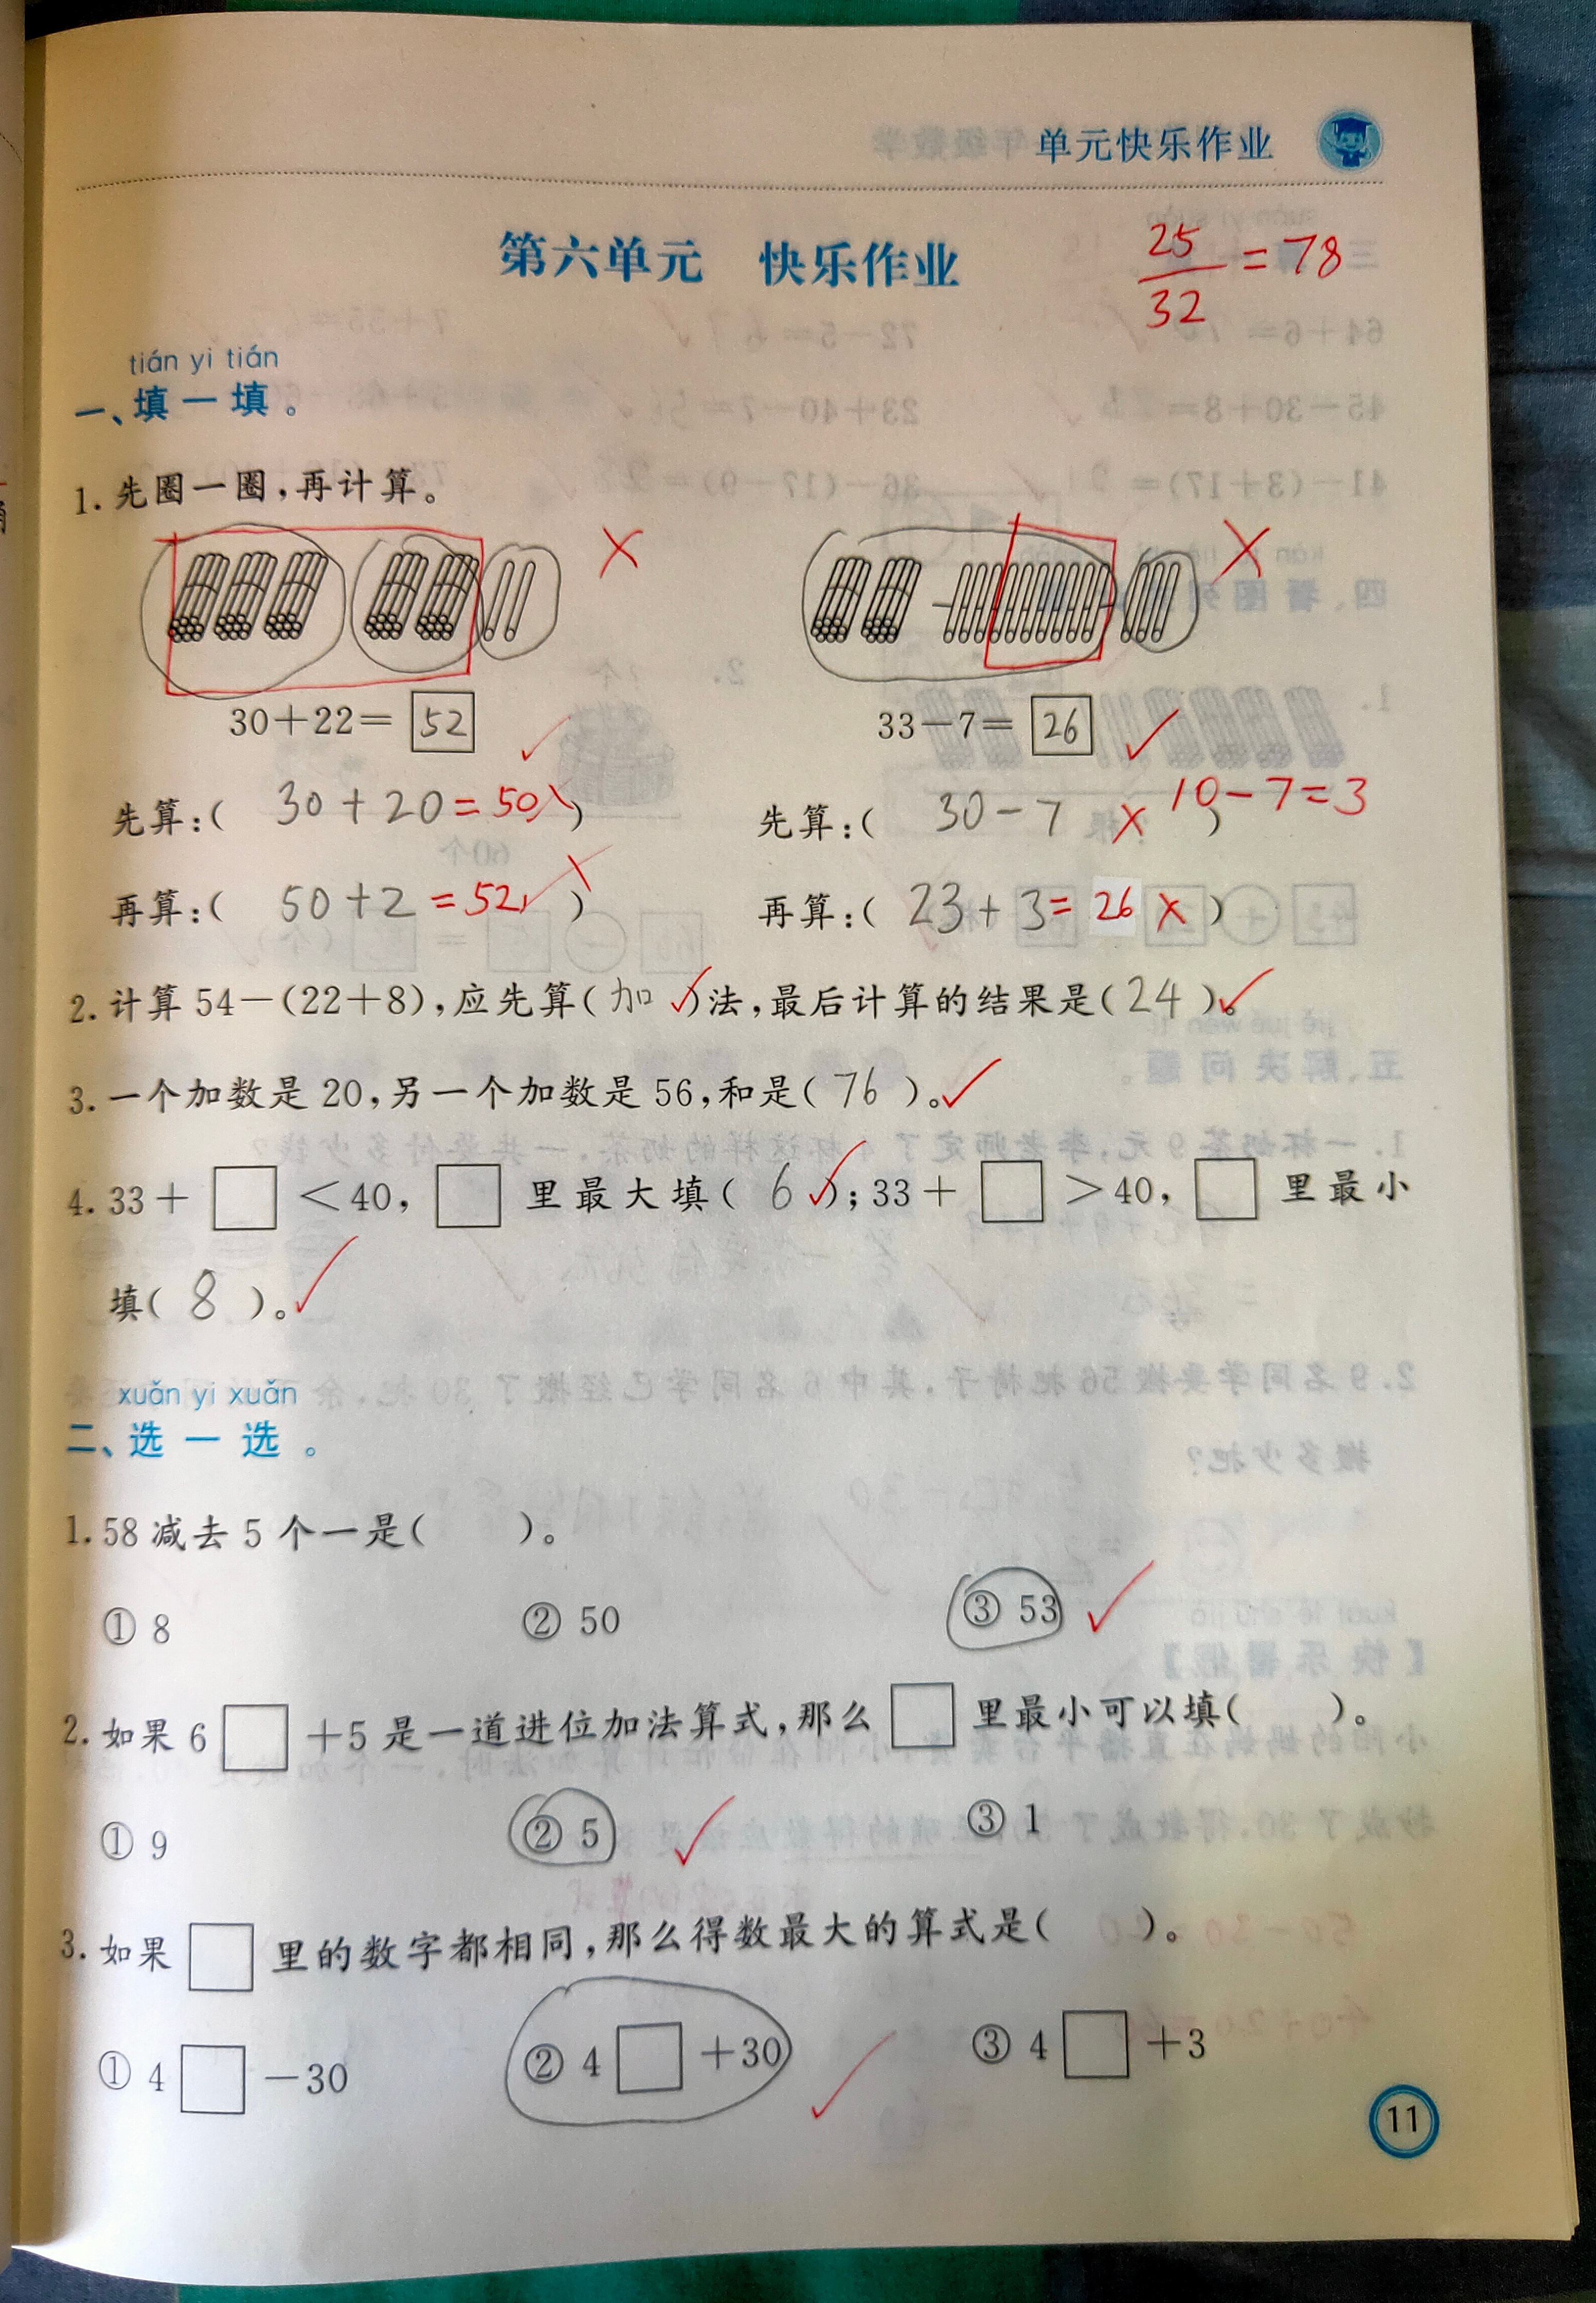 单元快乐作业
第六单元 快乐作业
25/32=78
tián yi tián
一、填一填。
1.先圈一圈,再计算。
× ×
30+22=52 ✓ 33-7=26 ✓
先算:( 30+20=50 × ) 先算:( 30-7 × ) 10-7=3
再算:( 50+2=52 × ) 再算:( 23+3=26 × )
2.计算54-(22+8),应先算(加✓)法,最后计算的结果是(24)。✓
3.一个加数是20,另一个加数是56,和是(76)。✓
4.33+□<40,□里最大填(6✓);33+□>40,□里最小
填(8)。✓
xuǎn yi xuǎn
二、选一选。
1.58减去5个一是( )。
①8 ②50 ③53 ✓
2.如果6□+5是一道进位加法算式,那么□里最小可以填( )。
①9 ②5 ✓ ③1
3.如果□里的数字都相同,那么得数最大的算式是( )。
①4□-30 ②4□+30 ✓ ③4□+3
11